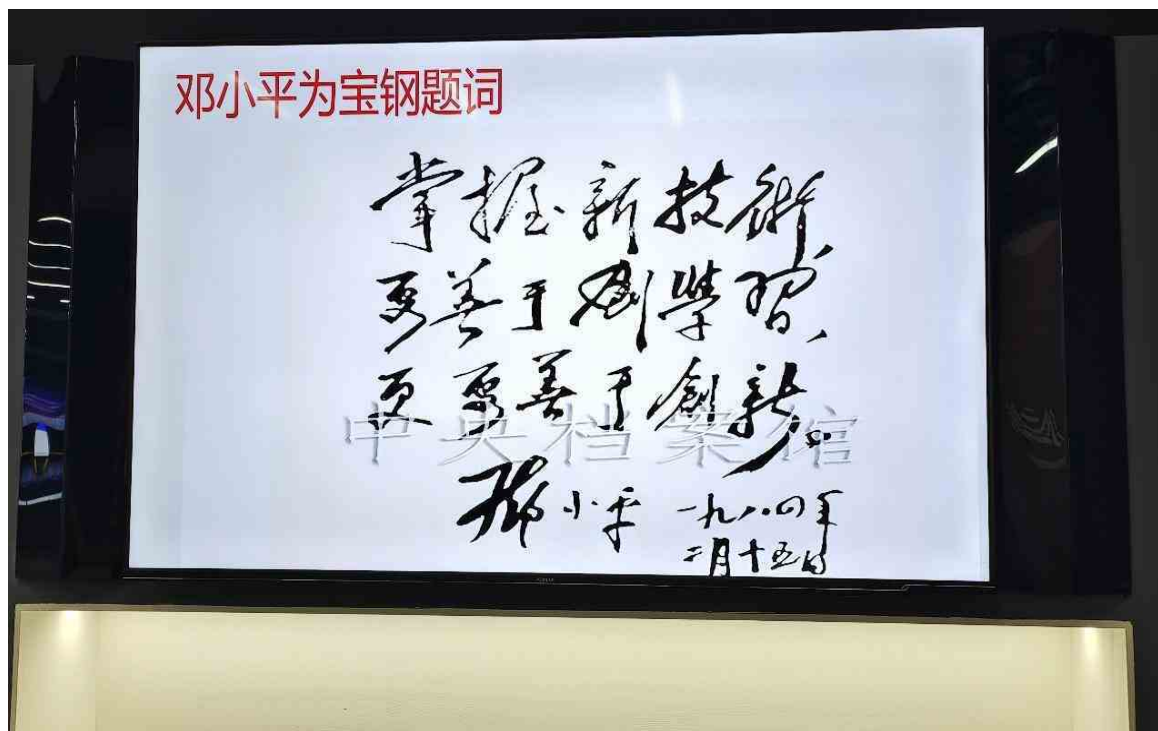 邓小平为宝钢题词
掌握新技術、
要善于學習、
更要善于創新。
中央档案馆
鄧小平 一九八四年
二月十五日